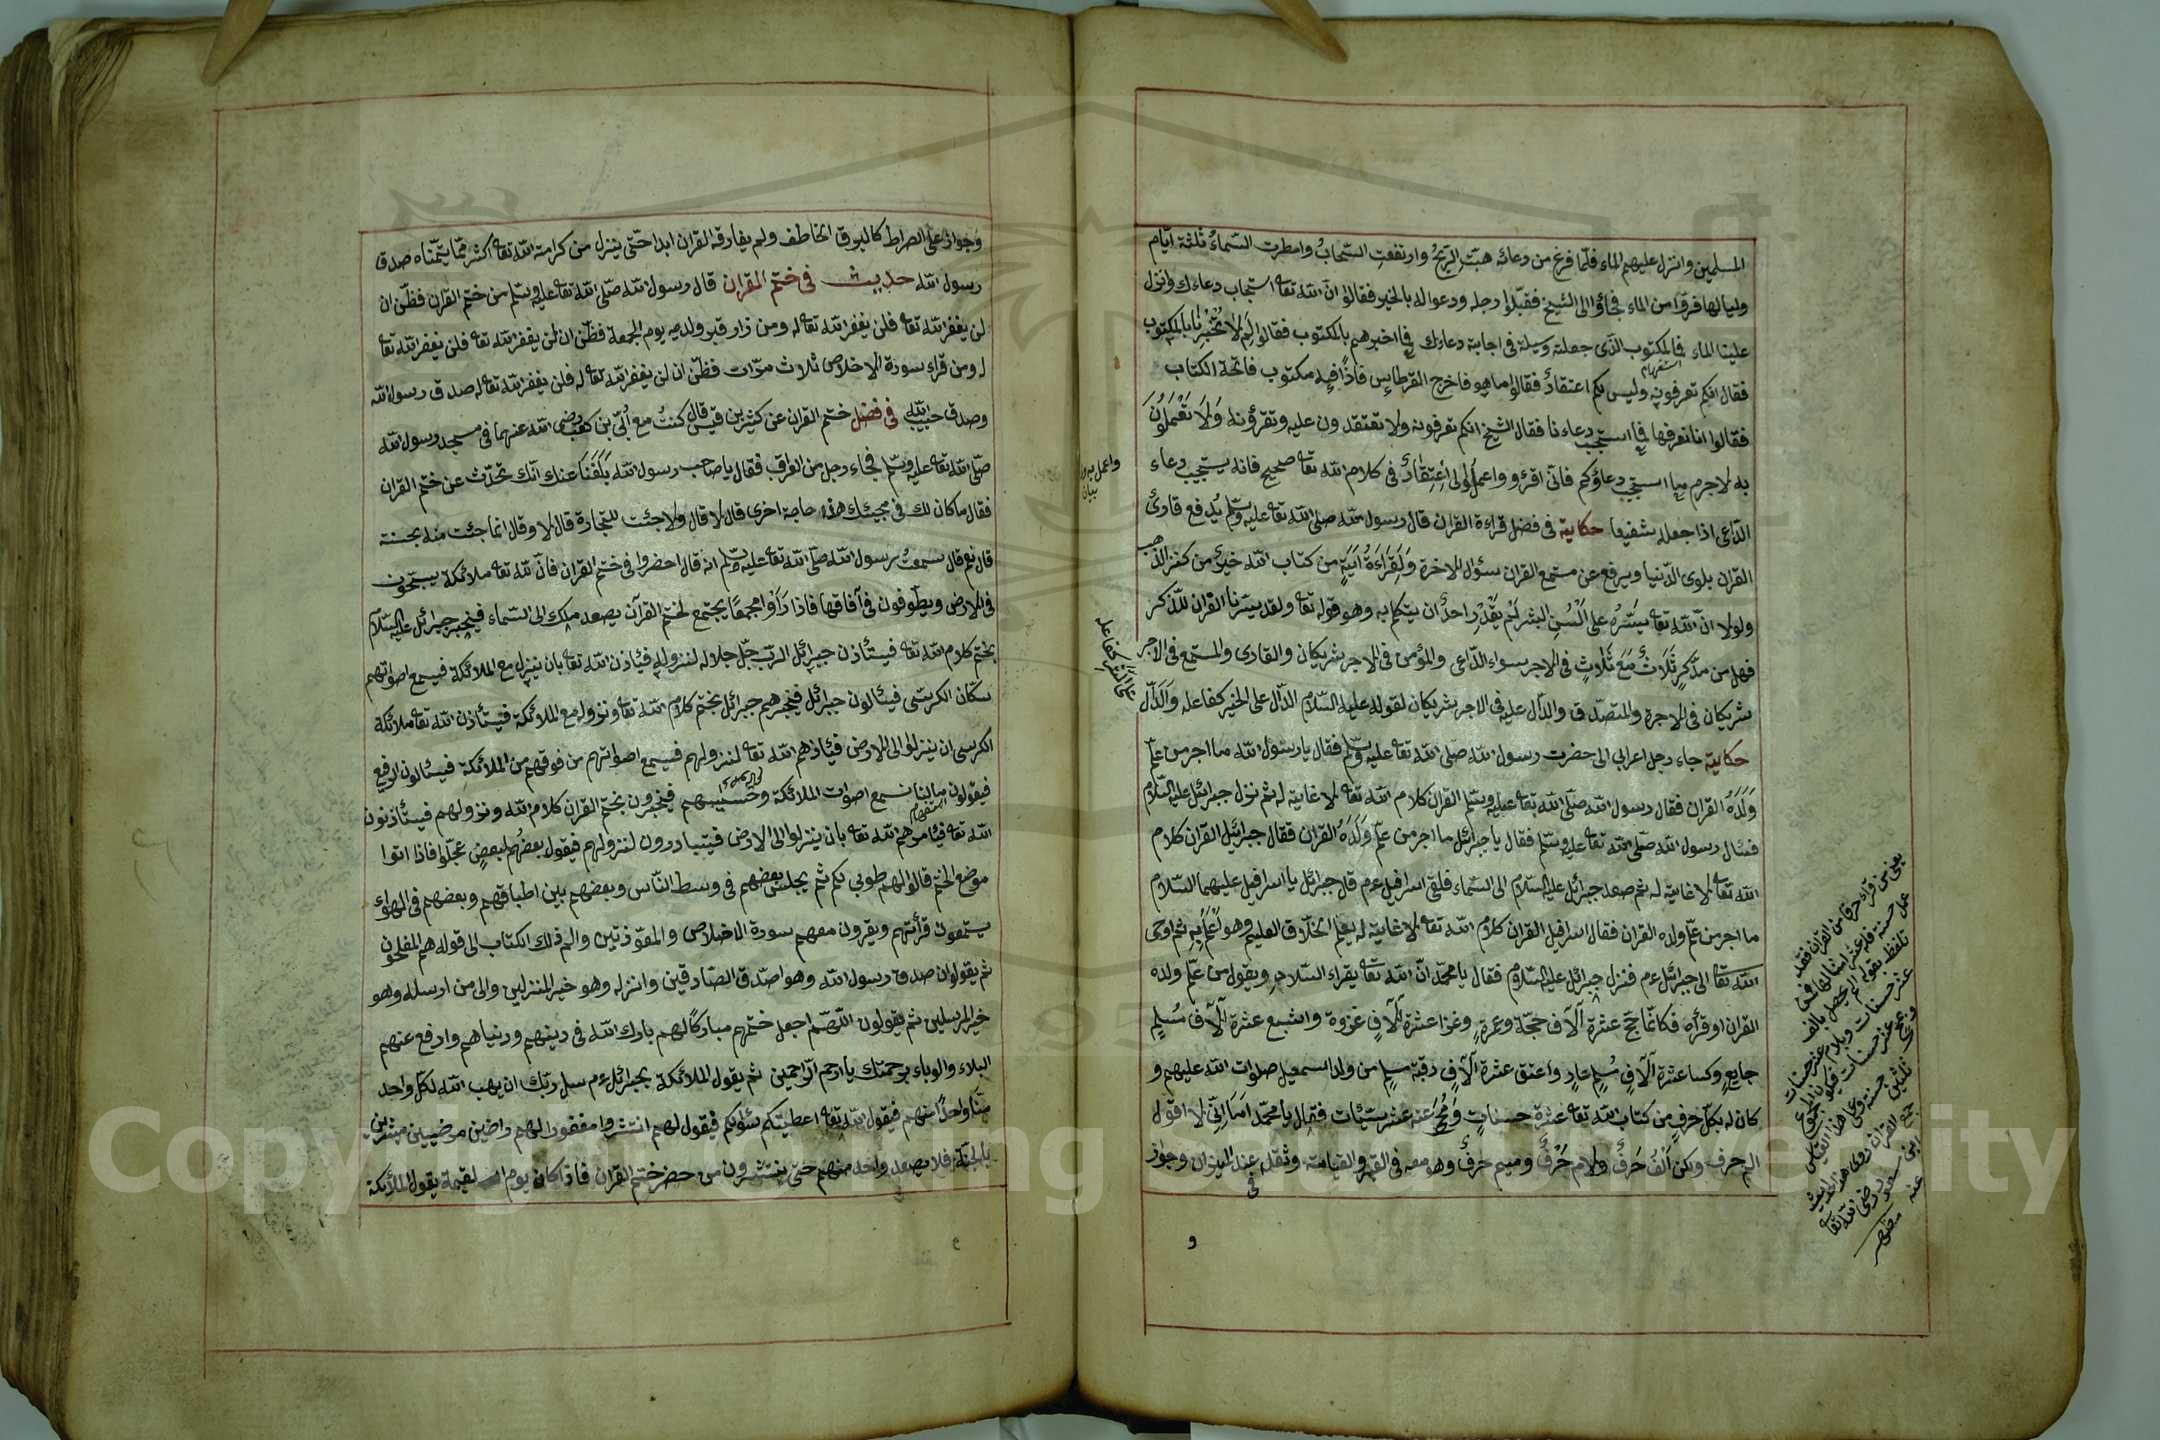 المسلمين وانزل عليهم الماء فلمّا فرغ من دعائه هبّت الرّيح وارتفعت السّحاب وامطرت السّماء ثلثة ايّام
ولياليها فرقا من الماء فجاؤا الى الشيخ فقبّلوا رجله ودعوا له بالخير فقالوا انّ الله تعا استجاب دعاءك وانزل
علينا الماء فالمكتوب الّذى جعلته وسيلة فى اجابة دعاءك فما اخبرهم بالمكتوب فقالوا لم لا تخبرنا بالمكتوب
فقال انكم تعرفونه وليس بكم اعتقاد فقالوا ما هو فاخرج القرطاس فاذا فيه مكتوب فاتحة الكتاب
فقالوا انا نعرفها فما استجيب دعاءنا فقال الشيخ انكم تعرفونه ولا تعتقدون عليه وتقرؤنه ولا تعملون
به لاجرم ما استجيب دعاؤكم فانّى اقرؤ واعمل ولى اعتقاد فى كلام الله تعا صحيح فانه يستجيب دعاء
الدّاعى اذا جعله شفيعا حكاية فى فضل قراءة القران قال رسول الله صلى الله تعا عليه وسلم يدفع قارئ
القران بلوى الدّنيا ويرفع عن مستمع القران سؤل الاخرة ولقراءة اية من كتاب الله خير من كنز الذهب
ولولا انّ الله تعا يسّره على السن البشر لم يقدر احد ان يتكلم به وهو قوله تعا ولقد يسّرنا القران للذّكر
فهل من مدّكر ثلاث مع ثلاث فى الاجر سواء الدّاعى والمؤمن فى الاجر شريكان والقارى والمستمع فى الاجر
شريكان فى الاجرة والمتصدّق والدآل عليه فى الاجر شريكان لقوله عليه السّلام الدّال على الخير كفاعله والدّال
حكاية جاء رجل اعرابى الى حضرت رسول الله صلّى الله تعا عليه وسلم فقال يا رسول الله ما اجر من علّم
ولده القران فقال رسول الله صلّى الله تعا عليه وسلم القران كلام الله تعا لا غاية له ثم نزل جبرائيل عليه السّلام
فسئال رسول الله صلّى الله تعا عليه وسلم فقال يا جبرائل ما اجر من علّم ولده القران فقال جبرائيل القران كلام
الله تعا لا غاية له ثم صعد جبرائل عليه السّلام الى السّماء فلقى اسرافيل عم قال جبرائل يا اسرافيل عليهما السّلام
ما اجر من علّم ولده القران فقال اسرافيل القران كلام الله تعا لا غاية له يعلم الخلّاق العليم وهو اعلم به ثم اوحى
الله تعا الى جبرائل عم فنزل جبرائل عليه السّلام فقال يا محمّد انّ الله تعا يقراء السّلام ويقول من علّم ولده
القران او قرأه فكانّما حجّ عشرة آلاف حجّة وعمرة وغزا عشرة آلاف غزوة واشبع عشرة آلاف مسلم
جايع وكسا عشرة آلاف مسلم عار واعتق عشرة آلاف رقبة مسلم من ولد اسمعيل صلوات الله عليهم و
كان له بكلّ حرف من كتاب الله تعا عشرة حسنات ومحى عنه عشر سيّئات فقال يا محمّد اما انّى لا اقول
الم حرف ولكن الف حرف ولام حرف وميم حرف وهو معه فى القبر والقيامة وثقل عند الميزان وجواز
و
واعمل به
بيان
على الشر كفاعله
يعنى من قراء حرفا من القران فقد
عمل حسنة فله عشر امثالها فمن
تلفظ بقوله الم يحصل بالف
عشر حسنات وبلام عشر حسنات
فيكون المجموع
ثلثين حسنة وعلى هذا القياس
جميع القران روى هذا الحديث
ابن مسعود رضى الله تعا
عنه
وجواز على الصراط كالبرق الخاطف ولم يفارقه القران ابدا حتّى ينزل من كرامة الله تعا اكثر ممّا يتمنّاه صدق
رسول الله حديث فى ختم القران قال رسول الله صلّى الله تعا عليه وسلم من ختم القران فظنّ ان
لن يغفر الله تعا فلن يغفر الله تعا له ومن زار قبر ولديه يوم الجمعة فظنّ ان لن يغفر الله تعا فلن يغفر الله تعا
له ومن قراء سورة الاخلاص ثلاث مرّات فظنّ ان لن يغفر الله تعا له فلن يغفر الله تعا له صدق رسول الله
وصدق حبيب الله فى فضل ختم القران عن كثير بن قيس قال كنت مع ابىّ بن كعب رضى الله عنهما فى مسجد رسول الله
صلّى الله تعا عليه وسلم فجاء رجل من العراق فقال يا صاحب رسول الله بلغنا عنك انّك تحدّث عن ختم القران
فقال ما كان لك فى مجيئك هذا حاجة اخرى قال لا قال ولا جئت للتجارة قال لا وقال انما جئت منه بحسنة
قال نعم قال سمعت رسول الله صلّى الله تعا عليه وسلم انه قال احضروا فى ختم القران فانّ لله تعا ملائكة يسبّحون
فى الارض ويطوفون فى آفاقها فاذا رأوا مجمعا يجتمع لختم القرآن يصعد ملك الى السّماء فيخبر جبرائل عليه السّلام
بختم كلام الله تعا فيستأذن جبرائل الربّ جلّ جلاله لنزوله فيأذن الله تعا بان ينزل مع الملائكة فيسمع اصواتهم
سكّان الكرسى فيسئالون جبرائل فيخبرهم جبرائل بختم كلام الله تعا ونزوله مع الملائكة فيستأذن الله تعا ملائكة
الكرسى ان ينزلوا الى الارض فيأذنهم الله تعا لنزولهم فيسمع اصواتهم من فوقهم من الملائكة فيسئالون الرفيع
فيقولون ما لنا نسمع اصوات الملائكة وحسيسهم فيخبرون بختم القران كلام الله ونزولهم فيستأذنون
الله تعا فيأمرهم الله تعا بان ينزلوا الى الارض فيتبادرون لنزولهم فيقول بعضهم لبعض عجّلوا فاذا اتوا
موضع الختم قالوا لهم طوبى لكم ثم يجلس بعضهم فى وسط النّاس وبعضهم بين اطباقهم وبعضهم فى الهواء
يستمعون قرأتهم ويقرون معهم سورة الاخلاص والمعوّذتين والم ذلك الكتاب الى قوله هم المفلحون
ثم يقولون صدق رسول الله وهو اصدق الصّادقين وانزله وهو خير المنزلين والى من ارسله وهو
خير المرسلين ثم يقولون اللّهمّ اجعل ختمهم مباركا لهم بارك الله فى دينهم ودنياهم وادفع عنهم
البلاء والوباء برحمتك يا ارحم الرّاحمين ثم يقول الملائكة بجبرائل عم سل ربّك ان يهب الله لكلّ واحد
منّا واحدا منهم فيقول الله تعا اعطيتكم سؤلكم فيقول لهم انتشروا مغفورا لهم راضين مرضيين مبشّرين
بالجنّة فلا يصعد واحد منهم حتّى ينتشرون من حضر ختم القران فاذا كان يوم القيمة يقول الملائكة
Copyright © King Saud University
1957